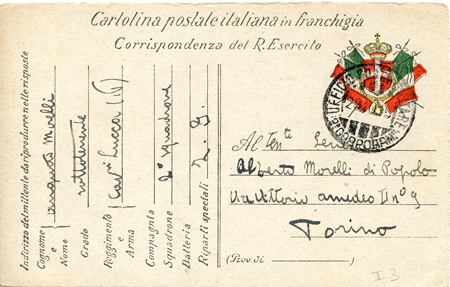 Cartolina postale italiana in franchigia
Corrispondenza del R. Esercito
Indirizzo del mittente da riprodurre nelle risposte
Cognome e Nome Augusto Morelli
Grado sottotenente
Reggimento e Arma Cavri Lucca (16)
Compagnia
Squadrone 2° Squadrone
Batteria
Riparti speciali Z. G.
UFFICIO
CORPO D'ARM
Al Tente
Alberto Morelli di Popolo
Via Vittorio Amedeo II n° 9
Torino
(Prov. di )
I 3